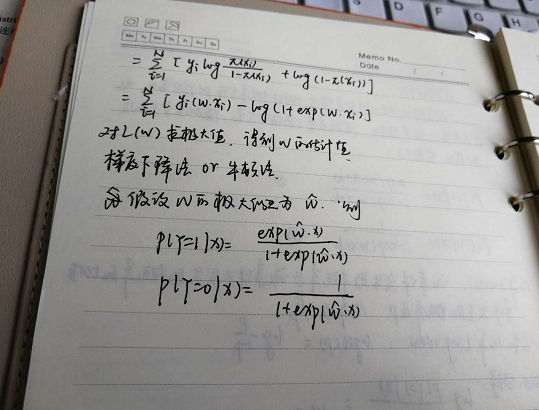 Mo Tu We Th Fr Sa Su
Memo No.
Date / /
= Σ_{i=1}^{N} [ y_i log π(x_i)/(1-π(x_i)) + log(1-π(x_i)) ]
= Σ_{i=1}^{N} [ y_i(w·x_i) - log(1+exp(w·x_i)) ]
对L(w)求极大值,得到w的估计值
梯度下降法 or 牛顿法.
假设w的极大似然为 ŵ. 则
P(Y=1|x) = exp(ŵ·x)/(1+exp(ŵ·x))
P(Y=0|x) = 1/(1+exp(ŵ·x))